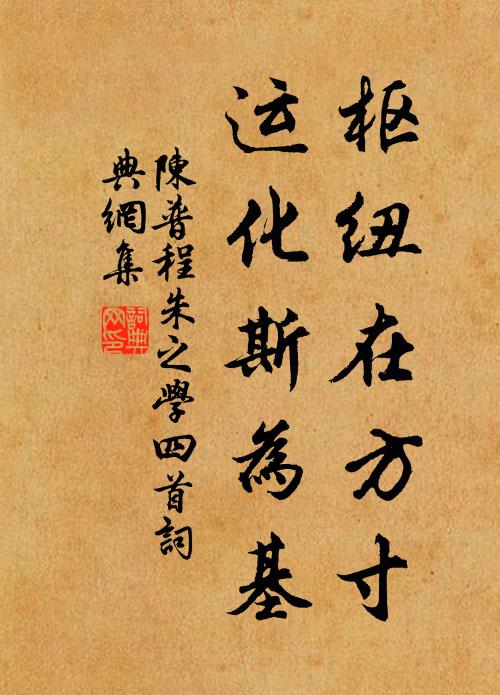 枢纽在方寸
运化斯為基
陳普程朱之學四首詞
典網集
詞典
网印